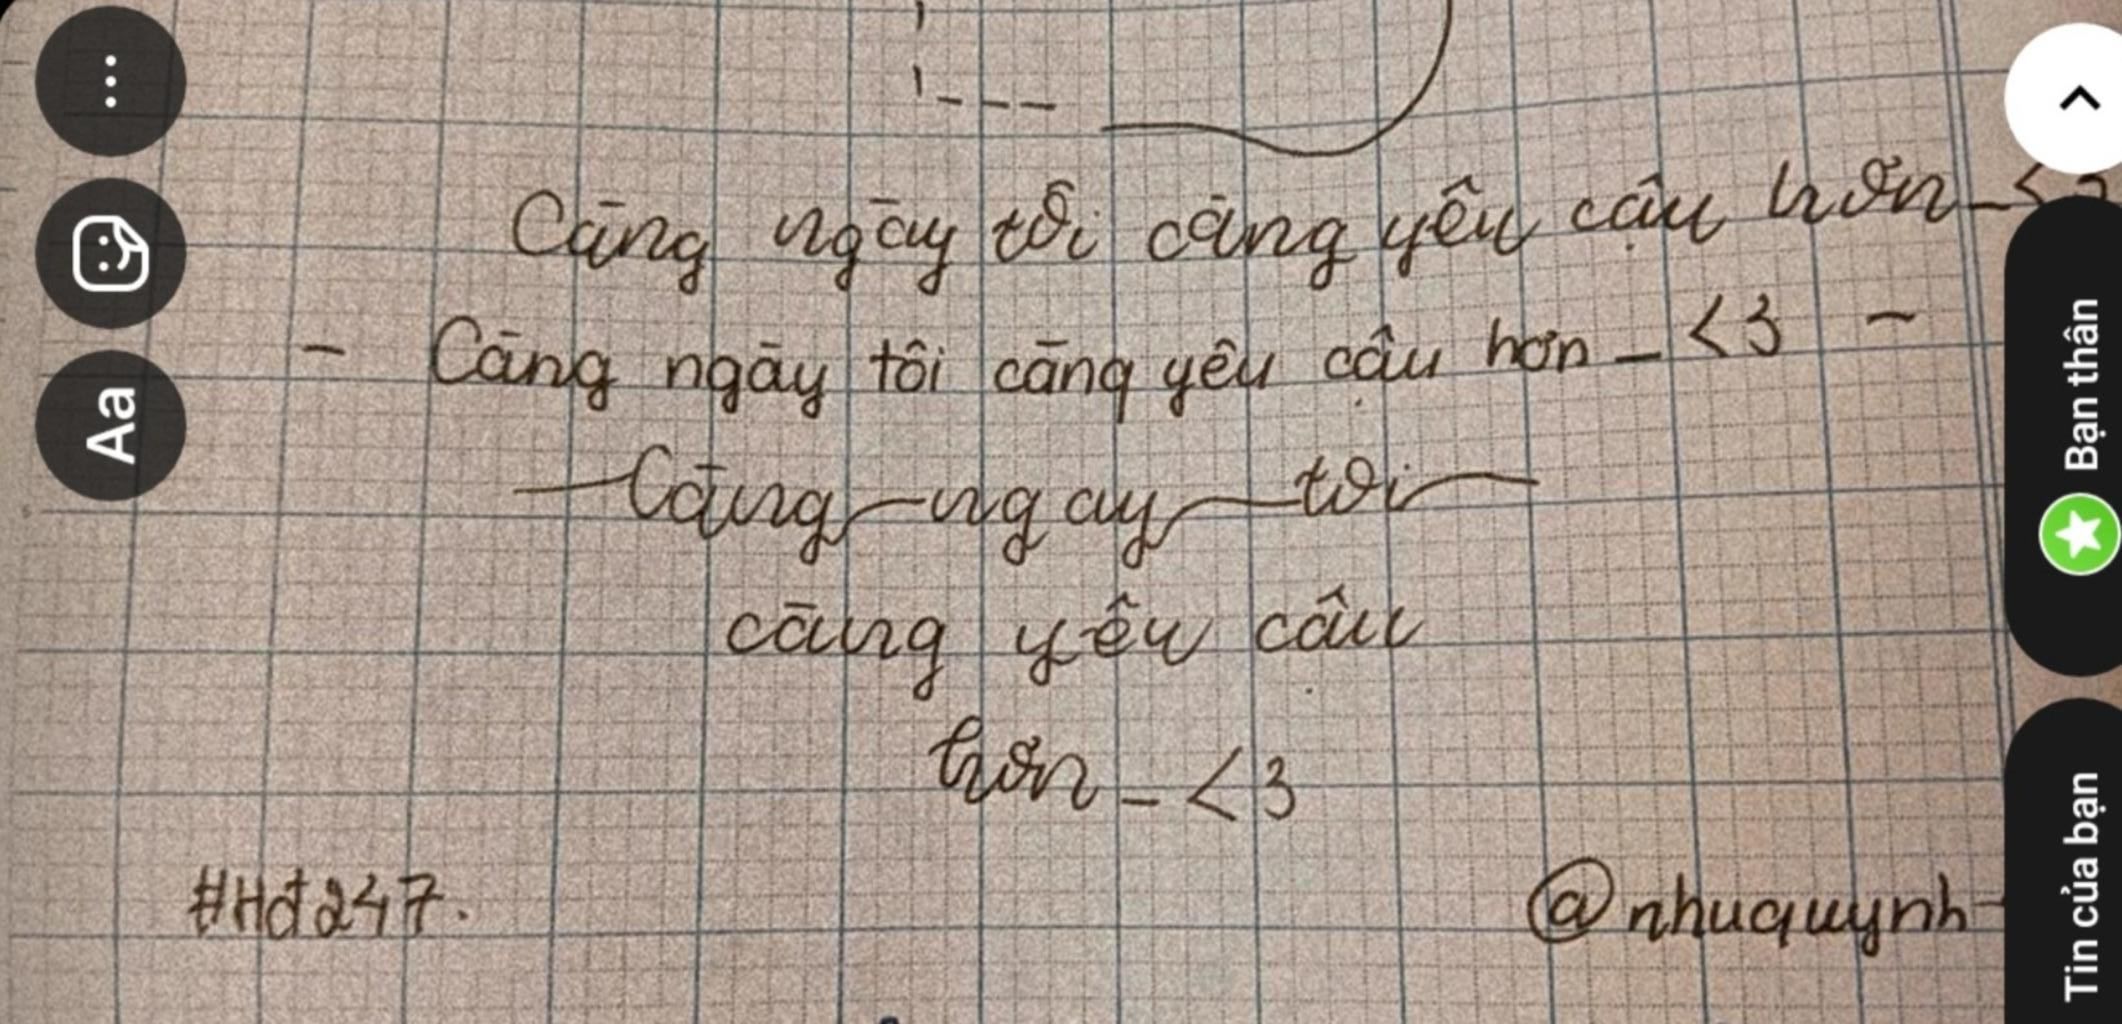 Càng ngày tôi càng yêu cậu hơn_<3
- Càng ngày tôi càng yêu cậu hơn_<3 -
Càng ngay tôi
càng yêu cậu
hơn_<3
#Hđ247.
@nhuquynh
Aa
Bạn thân
Tin của bạn